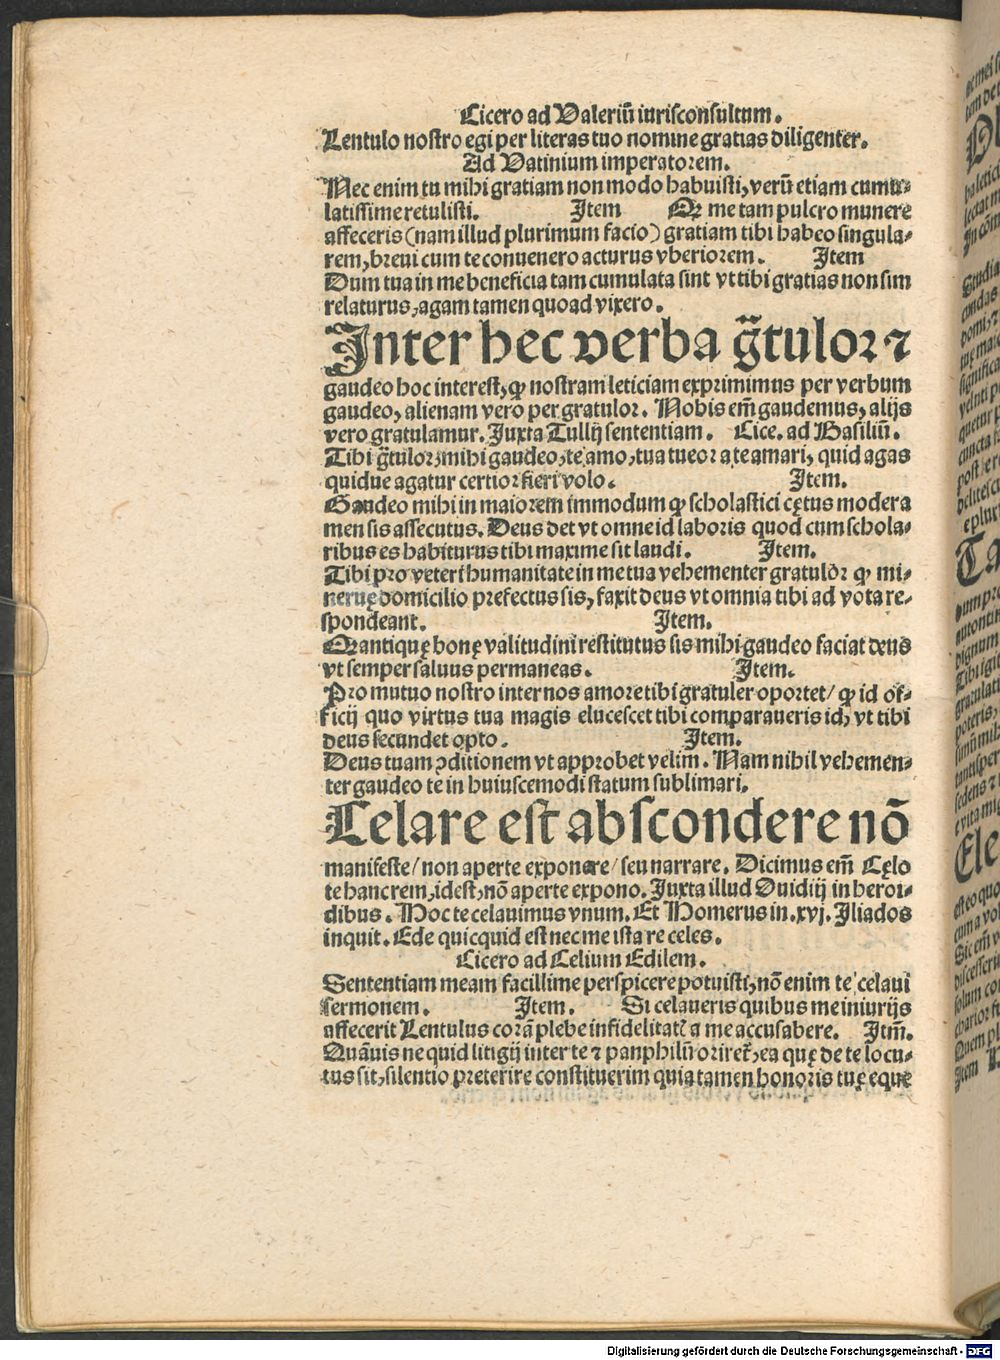 Cicero ad Valeriū iurisconsultum.
Lentulo nostro egi per literas tuo nomine gratias diligenter.
Ad Vatinium imperatorem.
Nec enim tu mihi gratiam non modo habuisti, verū etiam cumu-
latissime retulisti. Item Qꝛ me tam pulcro munere
affeceris (nam illud plurimum facio) gratiam tibi habeo singula-
rem, breui cum te conuenero acturus vberiorem. Item
Dum tua in me beneficia tam cumulata sint vt tibi gratias non sim
relaturus, agam tamen quoad vixero.
Inter hec verba g̃tulor ⁊
gaudeo hoc interest, ꝙ nostram leticiam exprimimus per verbum
gaudeo, alienam vero per gratulor. Nobis em̄ gaudemus, alijs
vero gratulamur. Juxta Tullij sententiam. Cice. ad Basiliū.
Tibi g̃tulor, mihi gaudeo, te amo, tua tueor a te amari, quid agas
quidue agatur certior fieri volo. Item.
Gaudeo mihi in maiorem immodum ꝙ scholastici cętus modera
men sis assecutus. Deus det vt omne id laboris quod cum schola-
ribus es habiturus tibi maxime sit laudi. Item.
Tibi pro veteri humanitate in me tua vehementer gratulor ꝙ mi-
neruę domicilio prefectus sis, faxit deus vt omnia tibi ad vota re-
spondeant. Item.
Qꝛ antiquę bonę valitudini restitutus sis mihi gaudeo faciat deus
vt semper saluus permaneas. Item.
Pro mutuo nostro inter nos amore tibi gratuler oportet/ ꝙ id of-
ficij quo virtus tua magis elucescet tibi comparaueris id, vt tibi
deus secundet opto. Item.
Deus tuam ꝯditionem vt approbet velim. Nam nihil vehemen-
ter gaudeo te in huiuscemodi statum sublimari.
Celare est abscondere nō
manifeste/ non aperte exponere/ seu narrare. Dicimus em̄ Cęlo
te hanc rem, idest, nō aperte expono. Juxta illud Ouidij in heroi-
dibus. Hoc te celauimus vnum. Et Homerus in .xvj. Iliados
inquit. Ede quicquid est nec me ista re celes.
Cicero ad Celium Edilem.
Sententiam meam facillime perspicere potuisti, nō enim te celaui
sermonem. Item. Si celaueris quibus me iniurijs
affecerit Lentulus corā plebe infidelitat̄ a me accusabere. Itm̄.
Quāuis ne quid litigij inter te ⁊ panphilū oriret̄, ea quę de te locu-
tus sit, silentio preterire constituerim quia tamen honoris tuę eque
Digitalisierung gefördert durch die Deutsche Forschungsgemeinschaft - DFG